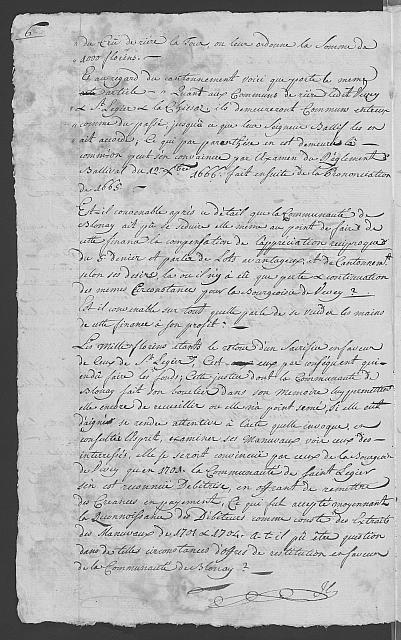 6
du Crû de riére la Tour, on leur ordonne la Somme de
1000 florins. —
Et au regard du cantonnement voici que porte le meme
article — Quant aux Communs de riére ledit Vevey
& St. Legier & la Chiésaz, ils demeureront Communs entreux
comme du passé jusques à ce que leur Seigneur Ballif les en
ait accordé; Ce qui par parenthèse en est demeuré
common peut s'en convaincre par Examen du Réglement
Ballival du 12e Xbre 1666. fait ensuite de la Prononciation
de 1665.
Est-il convenable après ce détail que la Communauté de
Blonay ait pû se réduire elle meme au point de faire de
cette finance la compensation de l'appréciation réciproque
du denier et partie de Lots avantageux, et de Cantonnement
selon ses desirs, là ou il n'y a été que perte & continuation
des memes circonstances pour la Bourgeoisie de Vevey ?
Est il convenable sur tout quelle parle de se vuider les mains
de cette finance à son profit. —
Les Mille florins étants le retour d'un Sacrifice en faveur
de Ceux de St. Legier, C'est eux par conséquent qui
en dû faire les fonds; Cette justice dont la Communauté de
Blonay fait son bouclier dans son Memoire luy permettent
elle encore de recueillir ou elle n'a point semé, Si elle eut
daigné se rendre attentive à l'acte quelle invoque, en
consulter l'Esprit, examiner ses Manuaux voir ceux des
interessés, elle se seroit convaincue par ceux de la
de Vevey qu'en 1703. la Communauté de Saint Legier
s'en est reconnuë Debitrice, en offrant de remettre
des Creances en payement, Ce qui fut accepté moyennant
la Reconnoissance des Debiteurs comme conste des Extraits
des Manuaux de 1701 & 1704. a-t-il pû être question
dans de telles circonstances d'offres de restitution en faveur
de la Communauté de Blonay ? —